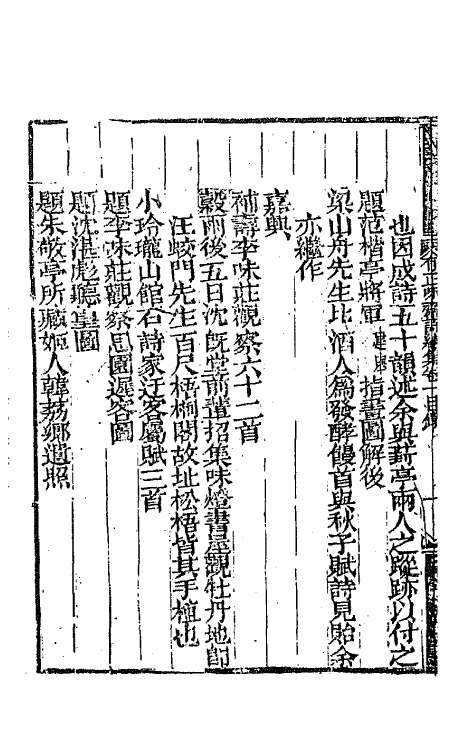 也因成詩五十韻述余與薪亭兩人之蹤跡以付之
題范楷亭將軍建豐指畫圖解後
梁山舟先生比酒人爲發酵饅首與秋子賦詩見貽余
亦繼作
嘉興
補壽李味莊觀察六十二首
穀雨後五日沈旣堂前輩招集味燈書屋觀牡丹地卽
汪蛟門先生百尺梧桐閣故址松梧皆其手植也
小玲瓏山館石詩家迂客屬賦三首
題李味莊觀察思園遲客圖
題沈湛彪聽皇圖
題朱敬亭所藏姬人韓荔鄉遺照